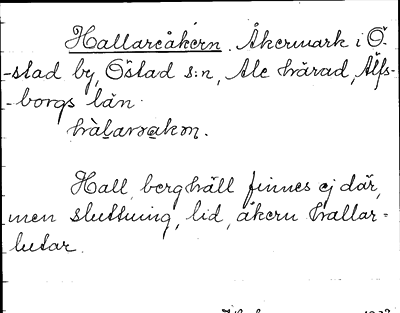 Hallareåkern. Åkermark i Ö-
-stad by, Östad s:n, Ale härad, Älfs-
-borgs län.
hàlarəakən.
Hall, berghäll finnes ej där,
men sluttning, lid, åkern hallar =
lutar.